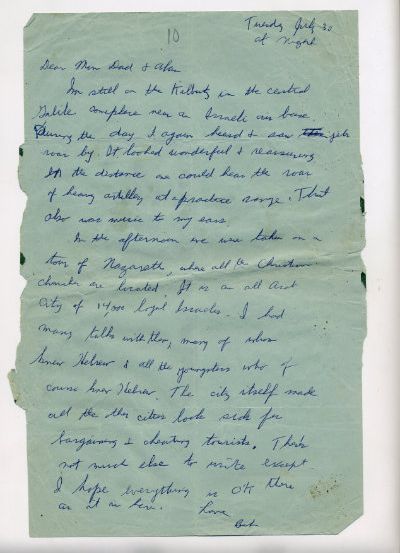 10
Tuesday July 30
at Night
Dear Mom Dad & Alan
I'm still on the Kibbutz in the central
Galilee someplace near an Israeli air base.
During the day I again heard & saw jets
roar by. It looked wonderful & reassuring
In the distance we could hear the roar
of heavy artillery at a practice range. That
also was music to my ears.
In the afternoon we were taken on a
tour of Nazareth, where all the Christian
churches are located. It is an all Arab
city of loyal Israelis. I had
many talks with them, many of whom
knew Hebrew & all the youngsters who of
course knew Hebrew. The city itself made
all the other cities look sick for
bargaining & cheating tourists. There's
not much else to write except
I hope everything is OK there
as it is here. Love
Bob